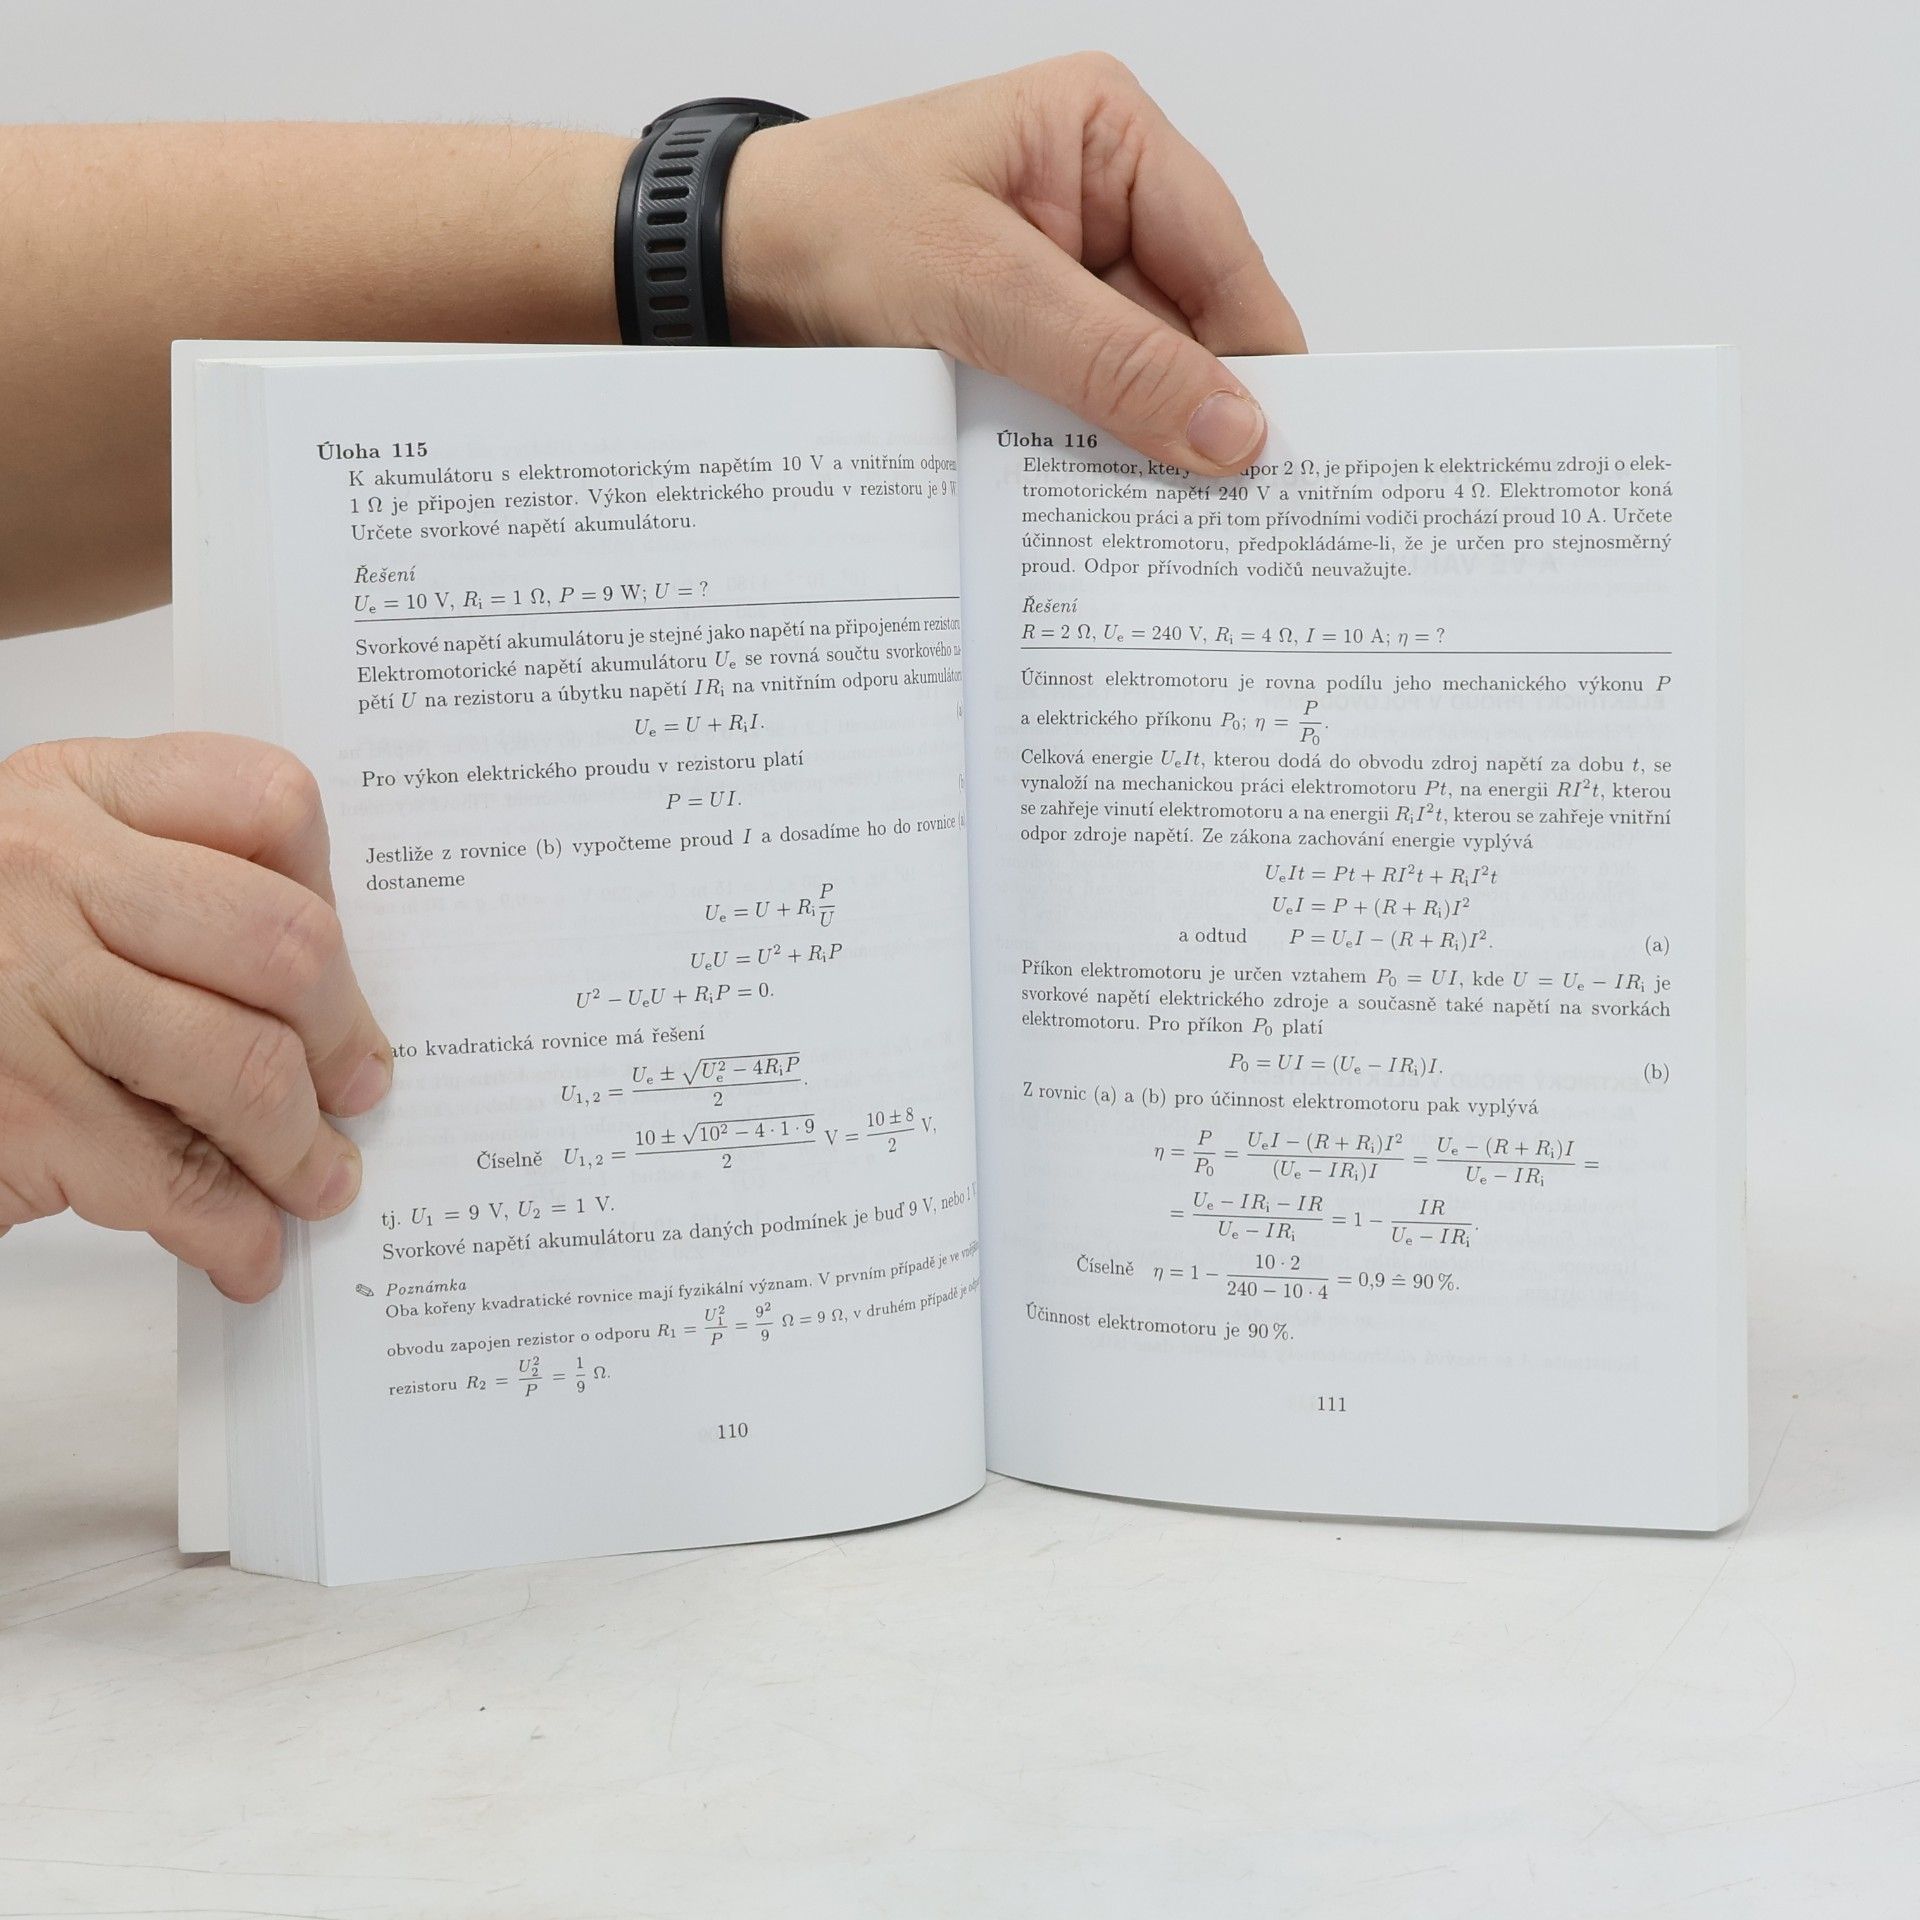 Úloha 115
K akumulátoru s elektromotorickým napětím 10 V a vnitřním odporem
1 Ω je připojen rezistor. Výkon elektrického proudu v rezistoru je 9 W
Určete svorkové napětí akumulátoru.
Řešení
Uₑ = 10 V, Rᵢ = 1 Ω, P = 9 W; U = ?
Svorkové napětí akumulátoru je stejné jako napětí na připojeném rezistoru
Elektromotorické napětí akumulátoru Uₑ se rovná součtu svorkového na-
pětí U na rezistoru a úbytku napětí IRᵢ na vnitřním odporu akumulátoru
Uₑ = U + RᵢI.
Pro výkon elektrického proudu v rezistoru platí
P = UI.
Jestliže z rovnice (b) vypočteme proud I a dosadíme ho do rovnice (a)
dostaneme
Uₑ = U + Rᵢ P/U
UₑU = U² + RᵢP
U² − UₑU + RᵢP = 0.
ato kvadratická rovnice má řešení
U₁,₂ = (Uₑ ± √(Uₑ² − 4RᵢP))/2.
Číselně U₁,₂ = (10 ± √(10² − 4 · 1 · 9))/2 V = (10 ± 8)/2 V,
tj. U₁ = 9 V, U₂ = 1 V.
Svorkové napětí akumulátoru za daných podmínek je buď 9 V, nebo 1 V
✎ Poznámka
Oba kořeny kvadratické rovnice mají fyzikální význam. V prvním případě je ve vnějším
obvodu zapojen rezistor o odporu R₁ = U₁²/P = 9²/9 Ω = 9 Ω, v druhém případě je
rezistoru R₂ = U₂²/P = 1/9 Ω.
110
Úloha 116
Elektromotor, který odpor 2 Ω, je připojen k elektrickému zdroji o elek-
tromotorickém napětí 240 V a vnitřním odporu 4 Ω. Elektromotor koná
mechanickou práci a při tom přívodními vodiči prochází proud 10 A. Určete
účinnost elektromotoru, předpokládáme-li, že je určen pro stejnosměrný
proud. Odpor přívodních vodičů neuvažujte.
Řešení
R = 2 Ω, Uₑ = 240 V, Rᵢ = 4 Ω, I = 10 A; η = ?
Účinnost elektromotoru je rovna podílu jeho mechanického výkonu P
a elektrického příkonu P₀; η = P/P₀.
Celková energie UₑIt, kterou dodá do obvodu zdroj napětí za dobu t, se
vynaloží na mechanickou práci elektromotoru Pt, na energii RI²t, kterou
se zahřeje vinutí elektromotoru a na energii RᵢI²t, kterou se zahřeje vnitřní
odpor zdroje napětí. Ze zákona zachování energie vyplývá
UₑIt = Pt + RI²t + RᵢI²t
UₑI = P + (R + Rᵢ)I²
a odtud P = UₑI − (R + Rᵢ)I². (a)
Příkon elektromotoru je určen vztahem P₀ = UI, kde U = Uₑ − IRᵢ je
svorkové napětí elektrického zdroje a současně také napětí na svorkách
elektromotoru. Pro příkon P₀ platí
P₀ = UI = (Uₑ − IRᵢ)I. (b)
Z rovnic (a) a (b) pro účinnost elektromotoru pak vyplývá
η = P/P₀ = (UₑI − (R + Rᵢ)I²)/((Uₑ − IRᵢ)I) = (Uₑ − (R + Rᵢ)I)/(Uₑ − IRᵢ) =
= (Uₑ − IRᵢ − IR)/(Uₑ − IRᵢ) = 1 − IR/(Uₑ − IRᵢ).
Číselně η = 1 − (10 · 2)/(240 − 10 · 4) = 0,9 ≙ 90 %.
Účinnost elektromotoru je 90 %.
111